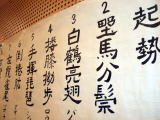 起勢
2 野馬分鬃
3 白鶴亮翅
4 摟膝拗步
5 手揮琵琶
6 倒捲肱